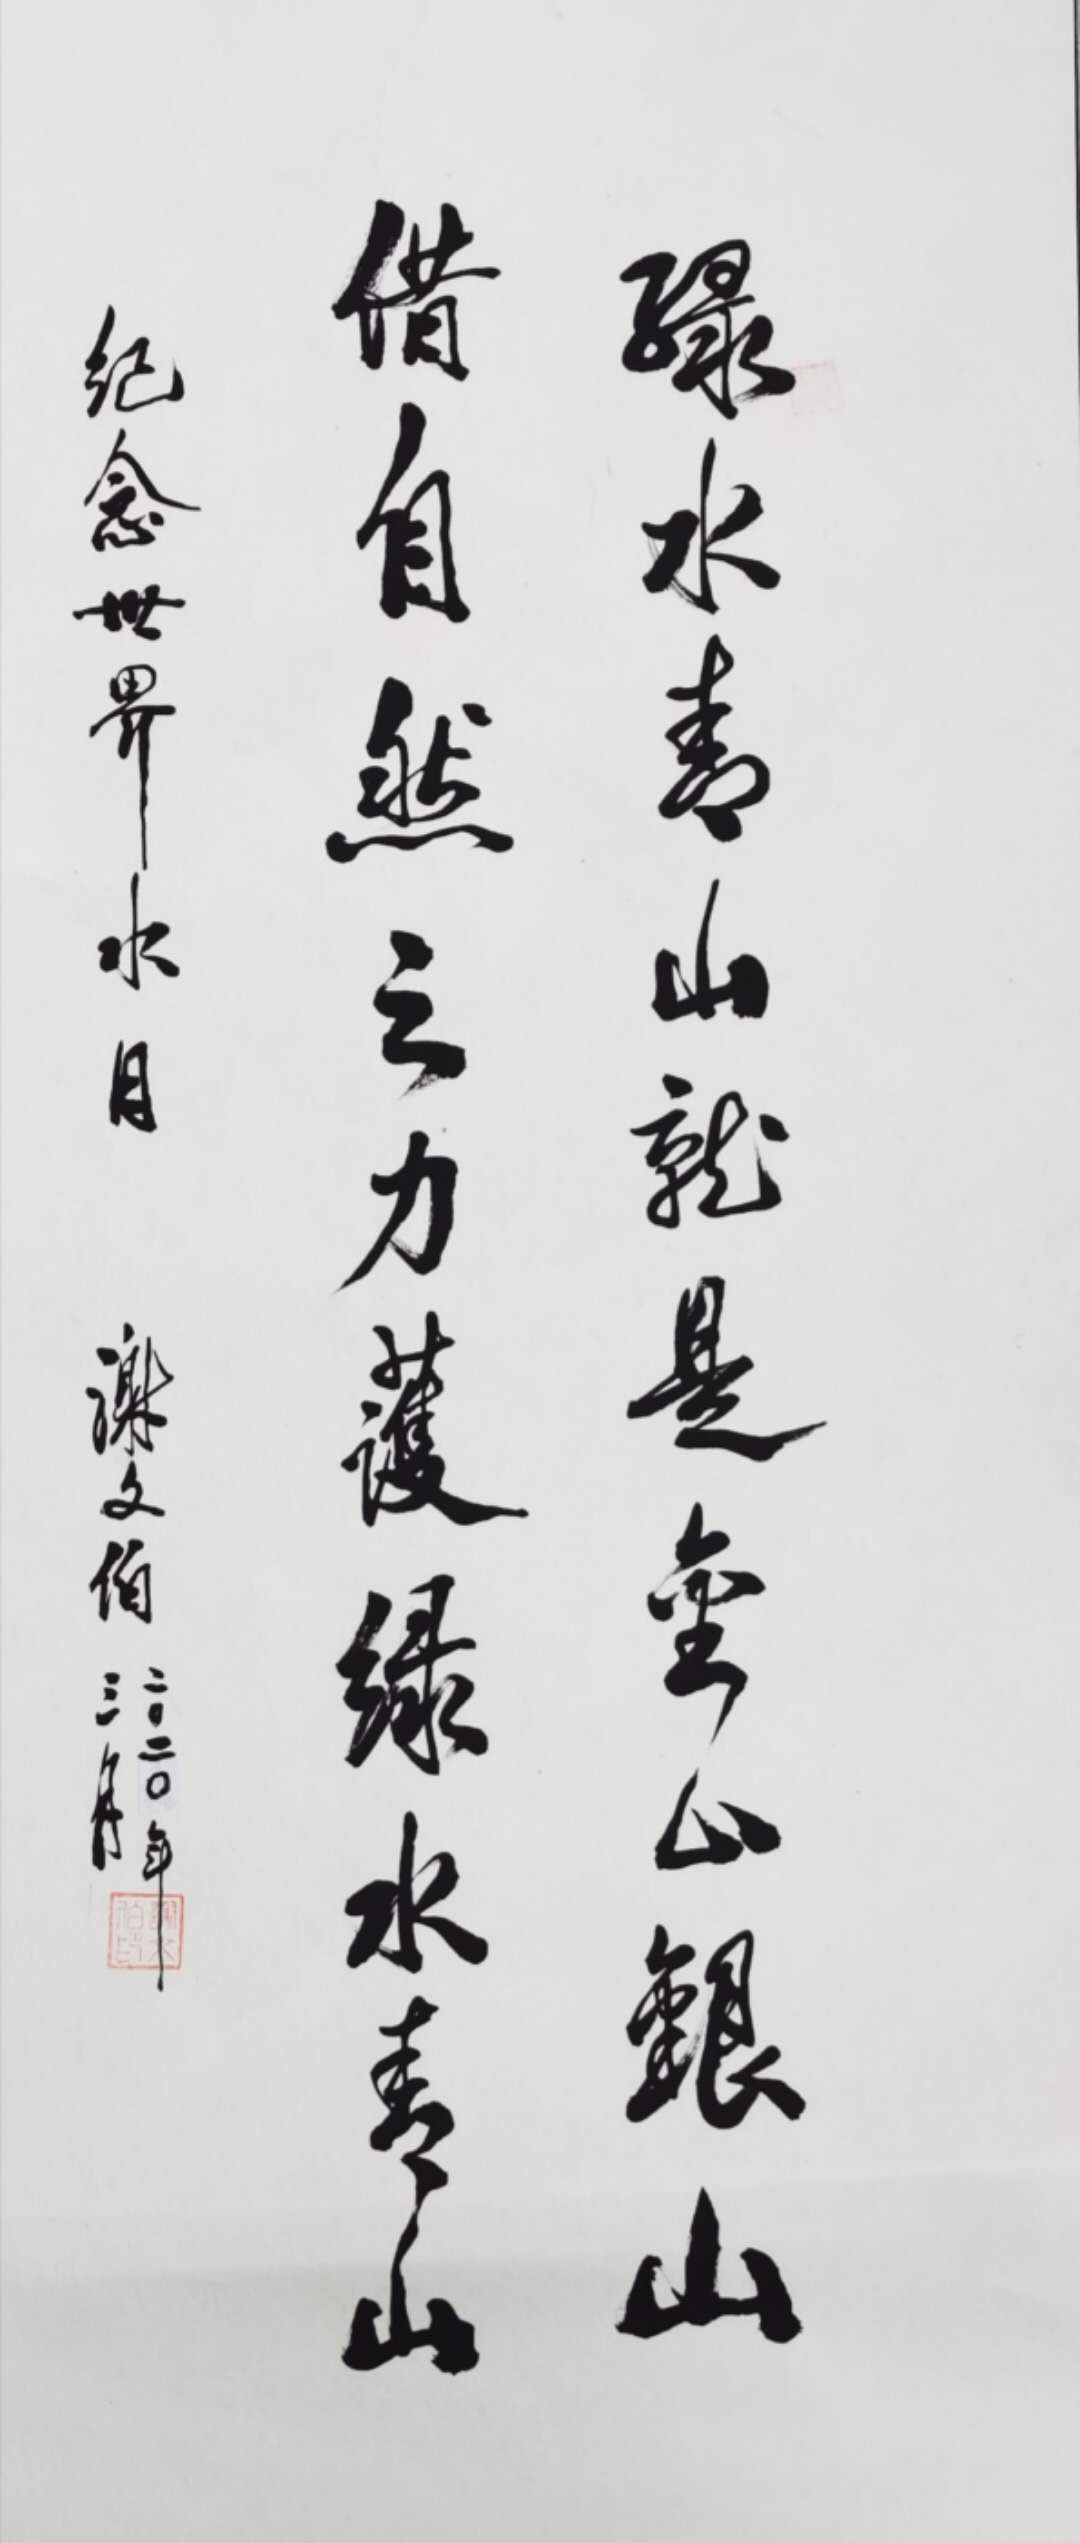 綠水青山就是金山銀山
借自然之力護绿水青山
纪念世界水日
謝文伯
二〇二〇年
三月